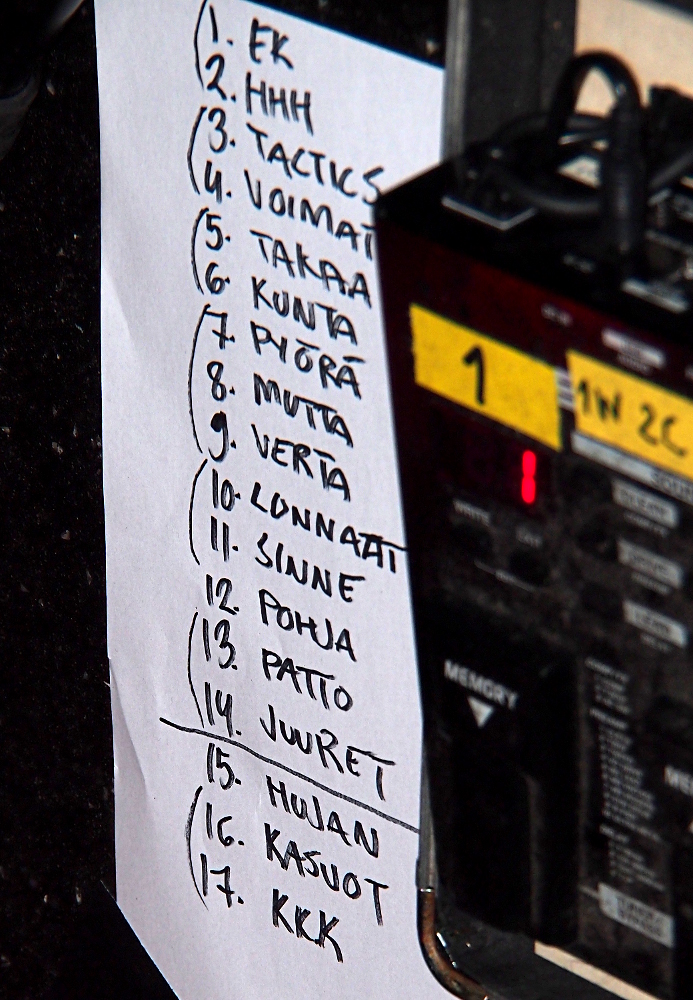 1. EK
2. HHH
3. TACTICS
4. VOIMAT
5. TAKAA
6. KUNTA
7. PYÖRÄ
8. MUTTA
9. VERTA
10. LONNAAT
11. SINNE
12. POHJA
13. PATIO
14. JUURET
15. HUJAN
16. KASVOT
17. KKK
1
1W 2C
1
MEMORY